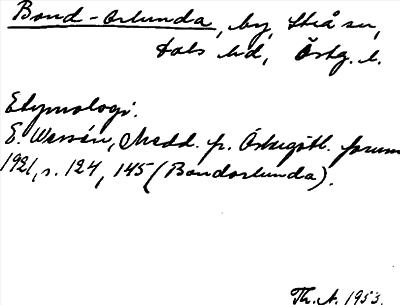 Bond-Orlunda, by, Strå sn,
Dals hd, Östg. l.
Etymologi.
E. Wessén, Medd. fr. Östergötl. fornm
1921, s. 124, 145 (Bondorlunda).
Th. A. 1953.